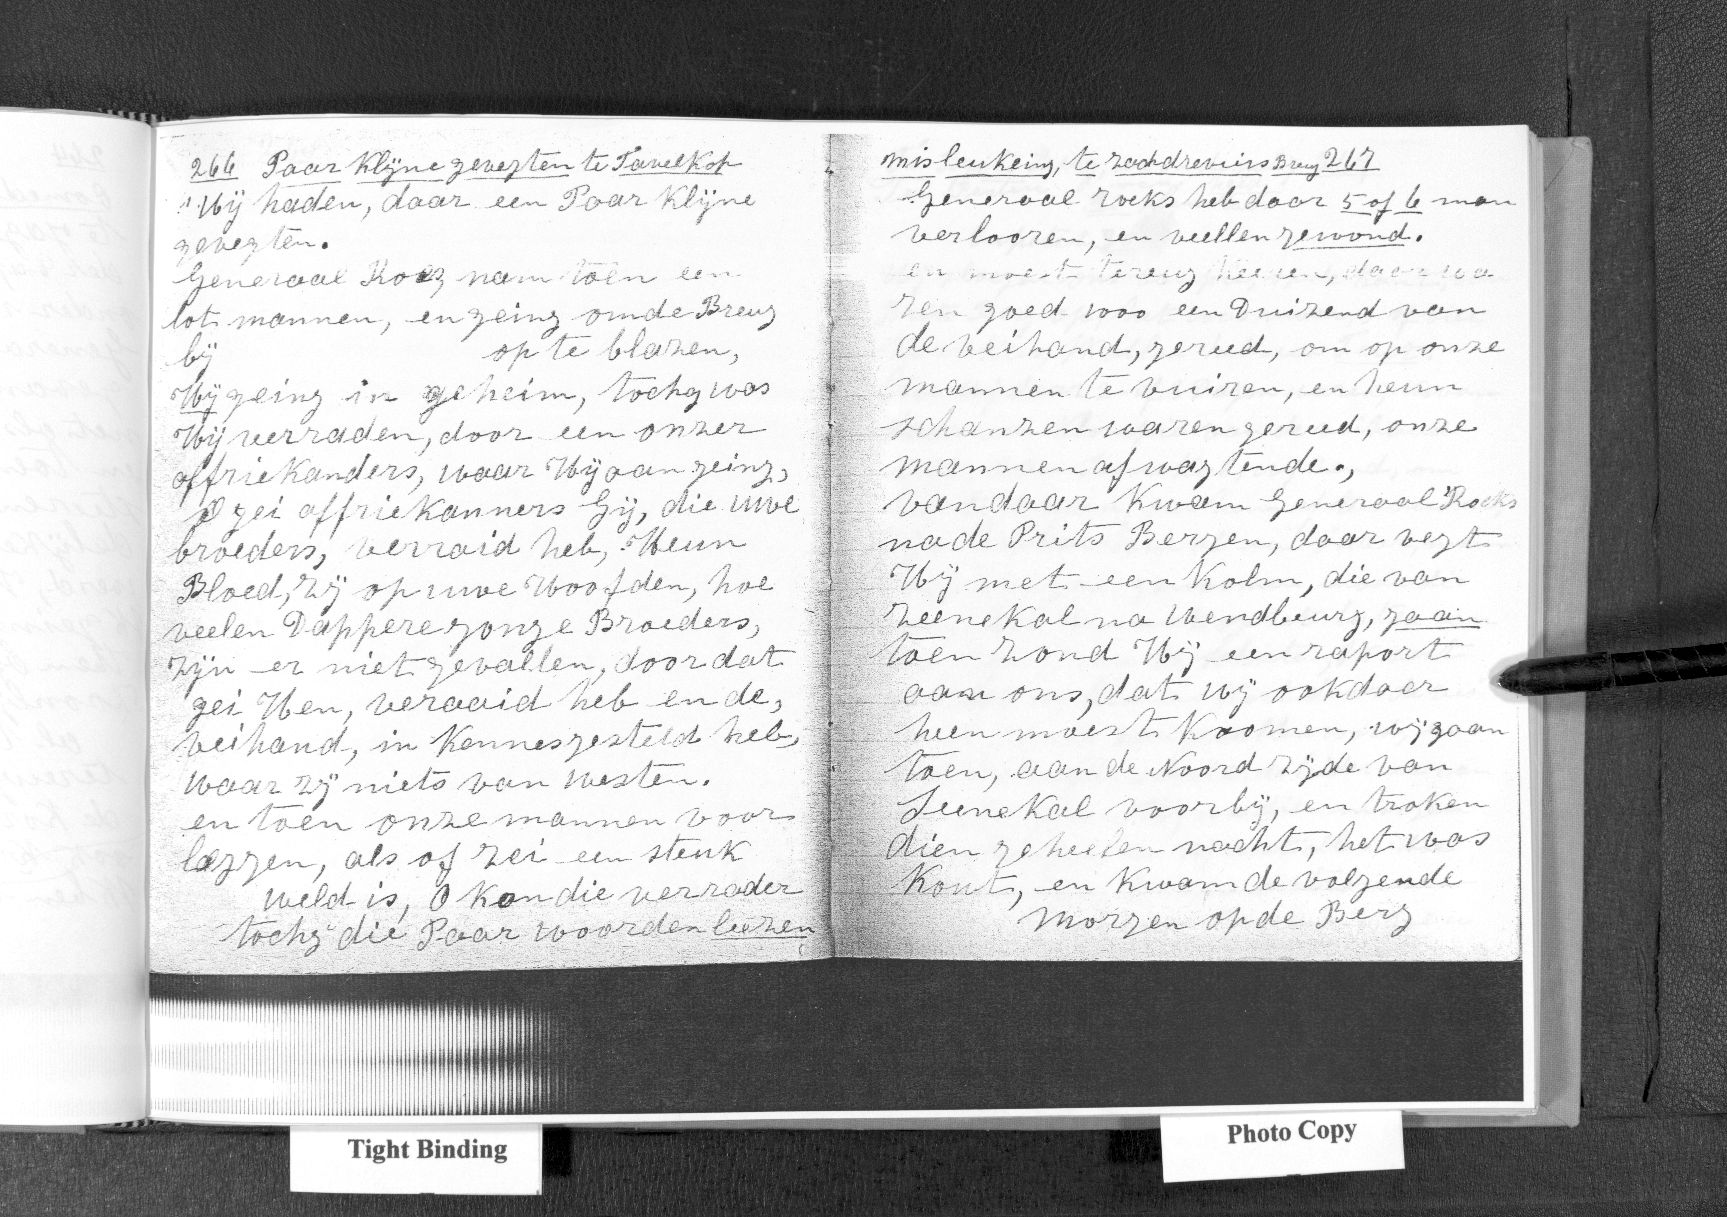 266 Paar Klyne gevegten te Tavelkop
Wÿ haden, daar een Paar Klÿne
gevegten.
Generaal Roeg nam toen een
lot mannen, en geing om de Breug
bÿ op te blazen,
Wÿ geing in geheim, tochg was
Wÿ verraden, door een onzer
affriekanders, waar Wÿ aan geing,
O gei affriekanners Gÿ, die uwe
broeders, verraid heb, Heun
Bloed, zÿ op uwe Hoofden, hoe
veelen Dappere gonge Broeders,
zÿn er niet gevallen, door dat
gei Hen, veraaid heb en de,
veihand, in Kennesgesteld heb,
waar zÿ niets van westen.
en toen onze mannen voor
leggen, als of zei een steuk
weld is, O kon die verrader
tochg die Paar woorden leezen
misleukeing, te zanddreveirs Breug 267
Generaal rocks heb daar 5 of 6 man
verlooren, en veellen gewond.
en moest tereug keeren, daar wa
ren goed 1000 een Duizend van
de veihand, gereed, om op onze
mannen te vuiren, en heun
schanzen waren gereed, onze
mannen afwagtende.,
vandaar Kwam Generaal Rocks
na de Prits Bergen, daar vegt
Wÿ met een Kolm, die van
zeenekal na Wendbeurg, gaan
toen zond Wÿ een raport
aan ons, dat wÿ ook daar
heen moest Koomen, wÿ gaan
toen, aan de Noord zÿde van
Seenekal voorbÿ, en troken
dien geheelen nacht, het was
Kout, en Kwam de volgende
Morgen op de Berg
Tight Binding
Photo Copy